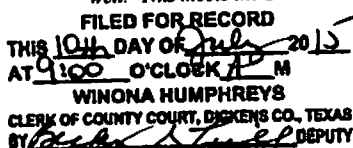 FILED FOR RECORD
THIS 10th DAY OF July 2015
AT 9:00 O'CLOCK A M
WINONA HUMPHREYS
CLERK OF COUNTY COURT, DICKENS CO., TEXAS
BY DEPUTY